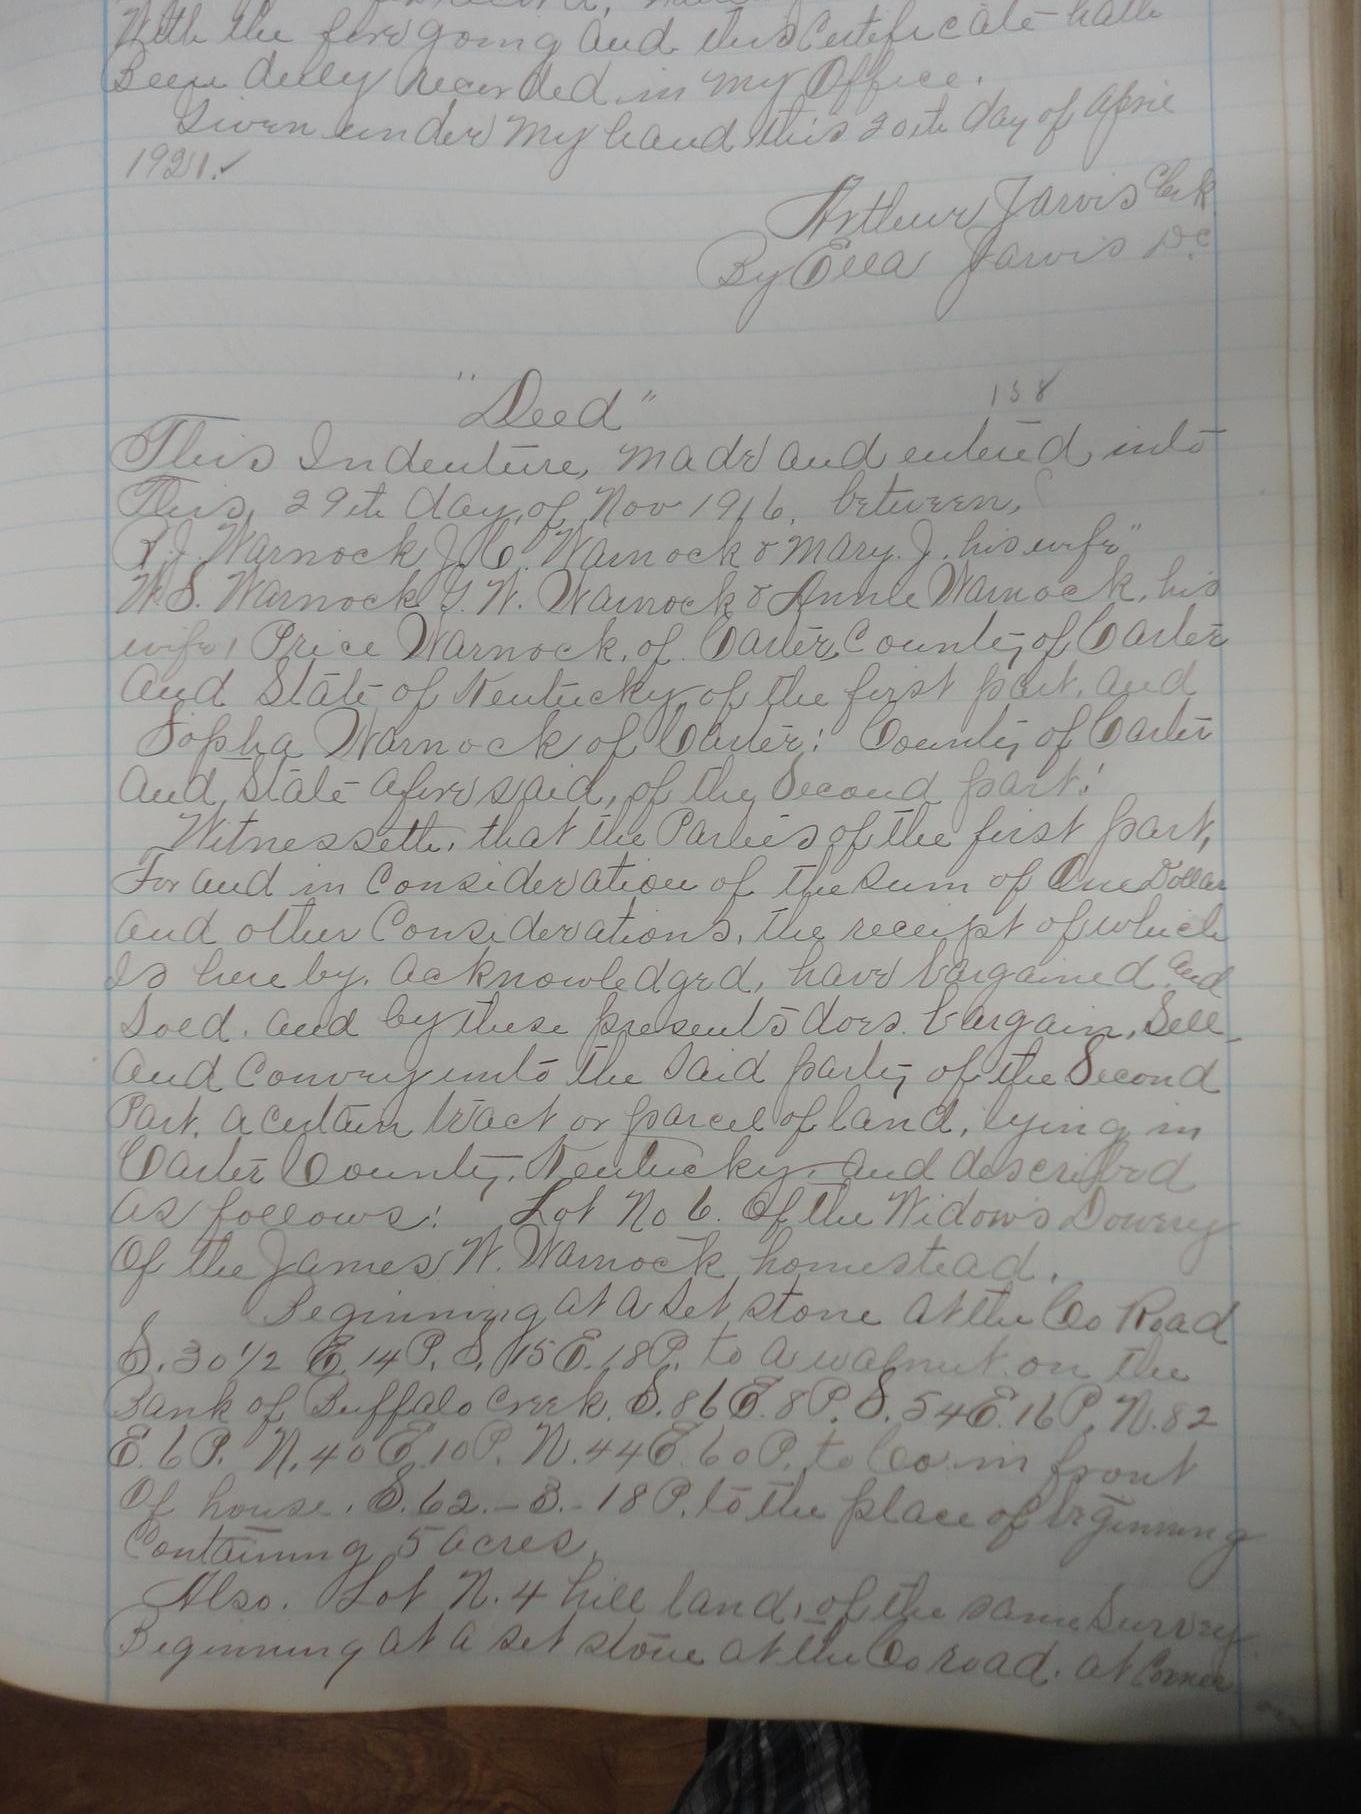 With the foregoing and this Certificate hath
Been duly recorded in my Office.
Given under my hand this 20th day of April
1921.✓
Arthur Jarvis Clerk
By Ella Jarvis D.C
"Deed" 138
This Indenture, made and entered into
This, 29th day, of Nov 1916, between,
R.J. Warnock J.C. Warnock & Mary. J. his wife"
W.S. Warnock G.W. Warnock & Annie Warnock, his
wife, Price Warnock, of Carter, County, of Carter
And State of Kentucky, of the first part, and
Sopha Warnock of Carter: County, of Carter
And, State aforesaid, of the Second part:
Witnesseth, that the Parties of the first part,
For and in Consideration of the sum of One Dollar
And other Considerations, the receipt of which
Is here by, acknowledged, have bargained and
Sold, and by these presents does, bargain, Sell,
And Convey unto the Said party, of the Second
Part, a certain tract or parcel of land, lying in
Carter County, Kentucky, and described
As follows: Lot No 6. Of the Widows Dowery
Of the James W. Warnock homestead.
Beginning at a set stone at the Co Road
S. 30 1/2 E. 14 P. S. 15 E. 18 P. to a walnut on the
Bank of Buffalo Creek, S. 86 E. 8 P. S. 54 E. 16 P. N. 82
E. 6 P. N. 40 E. 10 P. N. 44 E. 60 P. to Co. in front
Of house. S. 62. - 3. - 18 P. to the place of beginning
Containing 5 acres,
Also. Lot N. 4 hill land, of the same Survey
Beginning at a set stone at the Co road. at Corner